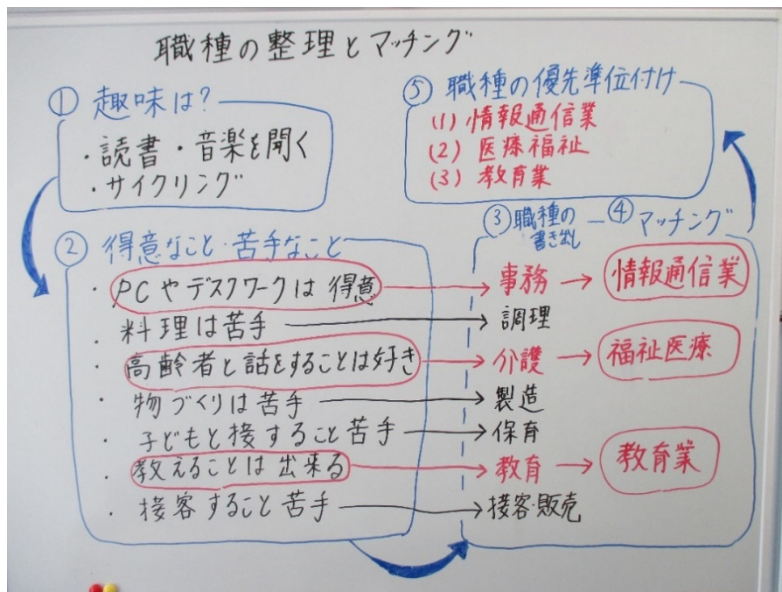 職種の整理とマッチング
① 趣味は?
・読書・音楽を聞く
・サイクリング
② 得意なこと・苦手なこと
・PCやデスクワークは得意
・料理は苦手
・高齢者と話をすることは好き
・物づくりは苦手
・子どもと接すること苦手
・教えることは出来る
・接客すること苦手
③ 職種の書き出し
事務
調理
介護
製造
保育
教育
接客・販売
④ マッチング
情報通信業
福祉医療
教育業
⑤ 職種の優先準位付け
(1) 情報通信業
(2) 医療福祉
(3) 教育業